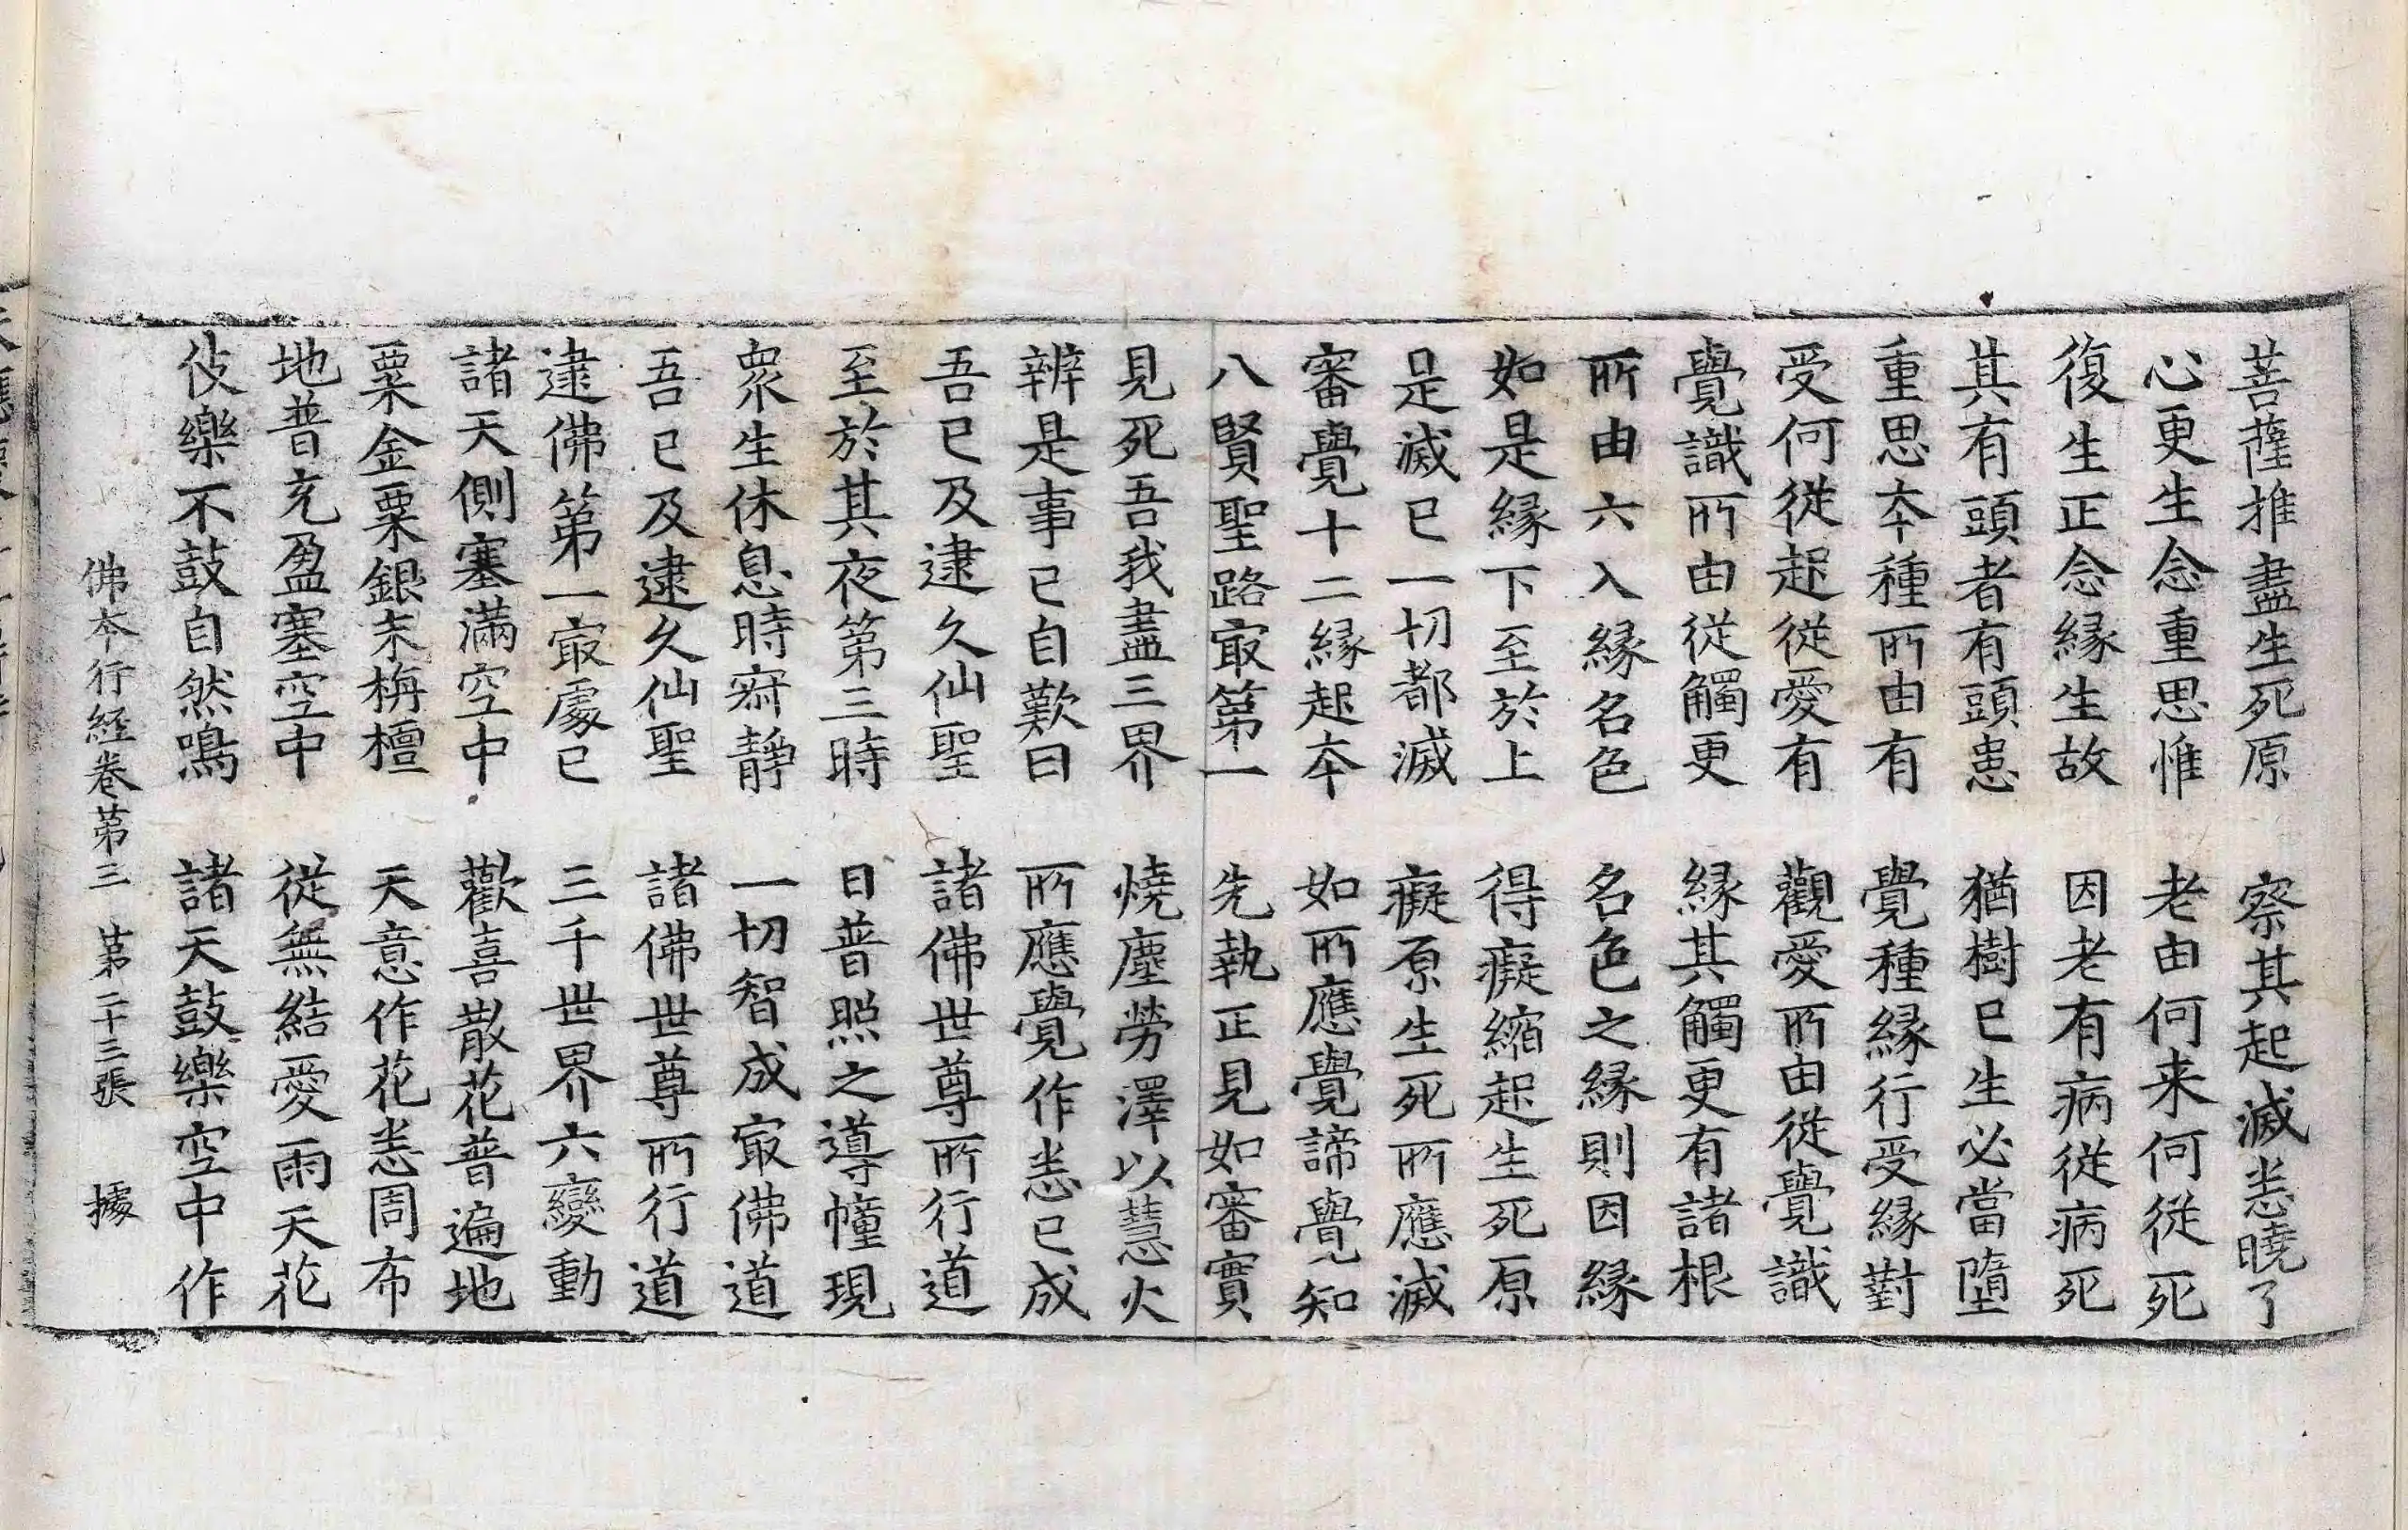 菩薩推盡生死原　察其起滅恙曉了
心更生念重思惟　老由何来何從死
復生正念縁生故　因老有病從病死
其有頭者有頭患　猶樹已生必當墮
重思夲種所由有　覺種縁行受縁對
受何從起從愛有　觀愛所由從覺識
覺識所由從觸更　縁其觸更有諸根
所由六入縁名色　名色之縁則因縁
如是縁下至於上　得癡縮起生死原
是滅已一切都滅　癡原生死所應滅
審覺十二縁起夲　如所應覺諦覺知
八賢聖路㝡第一　先執正見如審實
見死吾我盡三界　燒塵勞澤以慧火
辨是事已自歎曰　所應覺作恙已成
吾已及逮久仙聖　諸佛世尊所行道
至於其夜第三時　日普照之導幢現
衆生休息時寂靜　一切智成㝡佛道
吾已及逮久仙聖　諸佛世尊所行道
逮佛第一㝡處已　三千世界六變動
諸天側塞滿空中　歡喜散花普遍地
粟金粟銀末栴檀　天意作花恙周布
地普充盈塞空中　從無結愛雨天花
伎樂不鼓自然鳴　諸天鼓樂空中作
佛夲行経卷第三　第二十三張　據